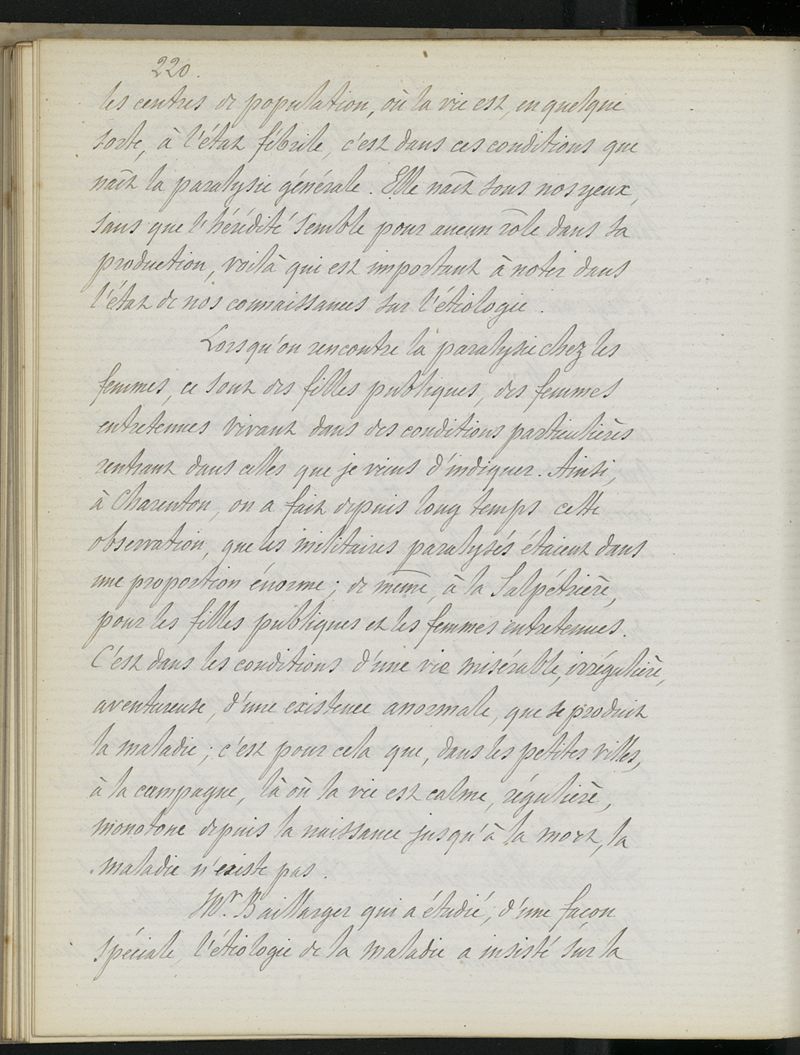 220.
les centres de population, où la vie est, en quelque
sorte, à l'état fébrile, c'est dans ces conditions que
naît la paralysie générale. Elle naît sous nos yeux,
sans que l'hérédité semble pour aucun rôle dans sa
production, voilà qui est important à noter dans
l'état de nos connaissances sur l'étiologie.
Lorsqu'on rencontre la paralysie chez les
femmes, ce sont des filles publiques, des femmes
entretenues vivant dans des conditions particulières
rentrant dans celles que je viens d'indiquer. Ainsi,
à Charenton, on a fait depuis long temps cette
observation, que les militaires paralysés étaient dans
une proportion énorme; de même, à la Salpétrière,
pour les filles publiques et les femmes entretenues.
C'est dans les conditions d'une vie misérable, irrégulière,
aventureuse, d'une existence anormale, que se produit
la maladie; c'est pour cela que, dans les petites villes,
à la campagne, là où la vie est calme, régulière,
monotone depuis la naissance jusqu'à la mort, la
maladie n'existe pas.
Mr Baillarger qui a étudié, d'une façon
spéciale, l'étiologie de la maladie a insisté sur la